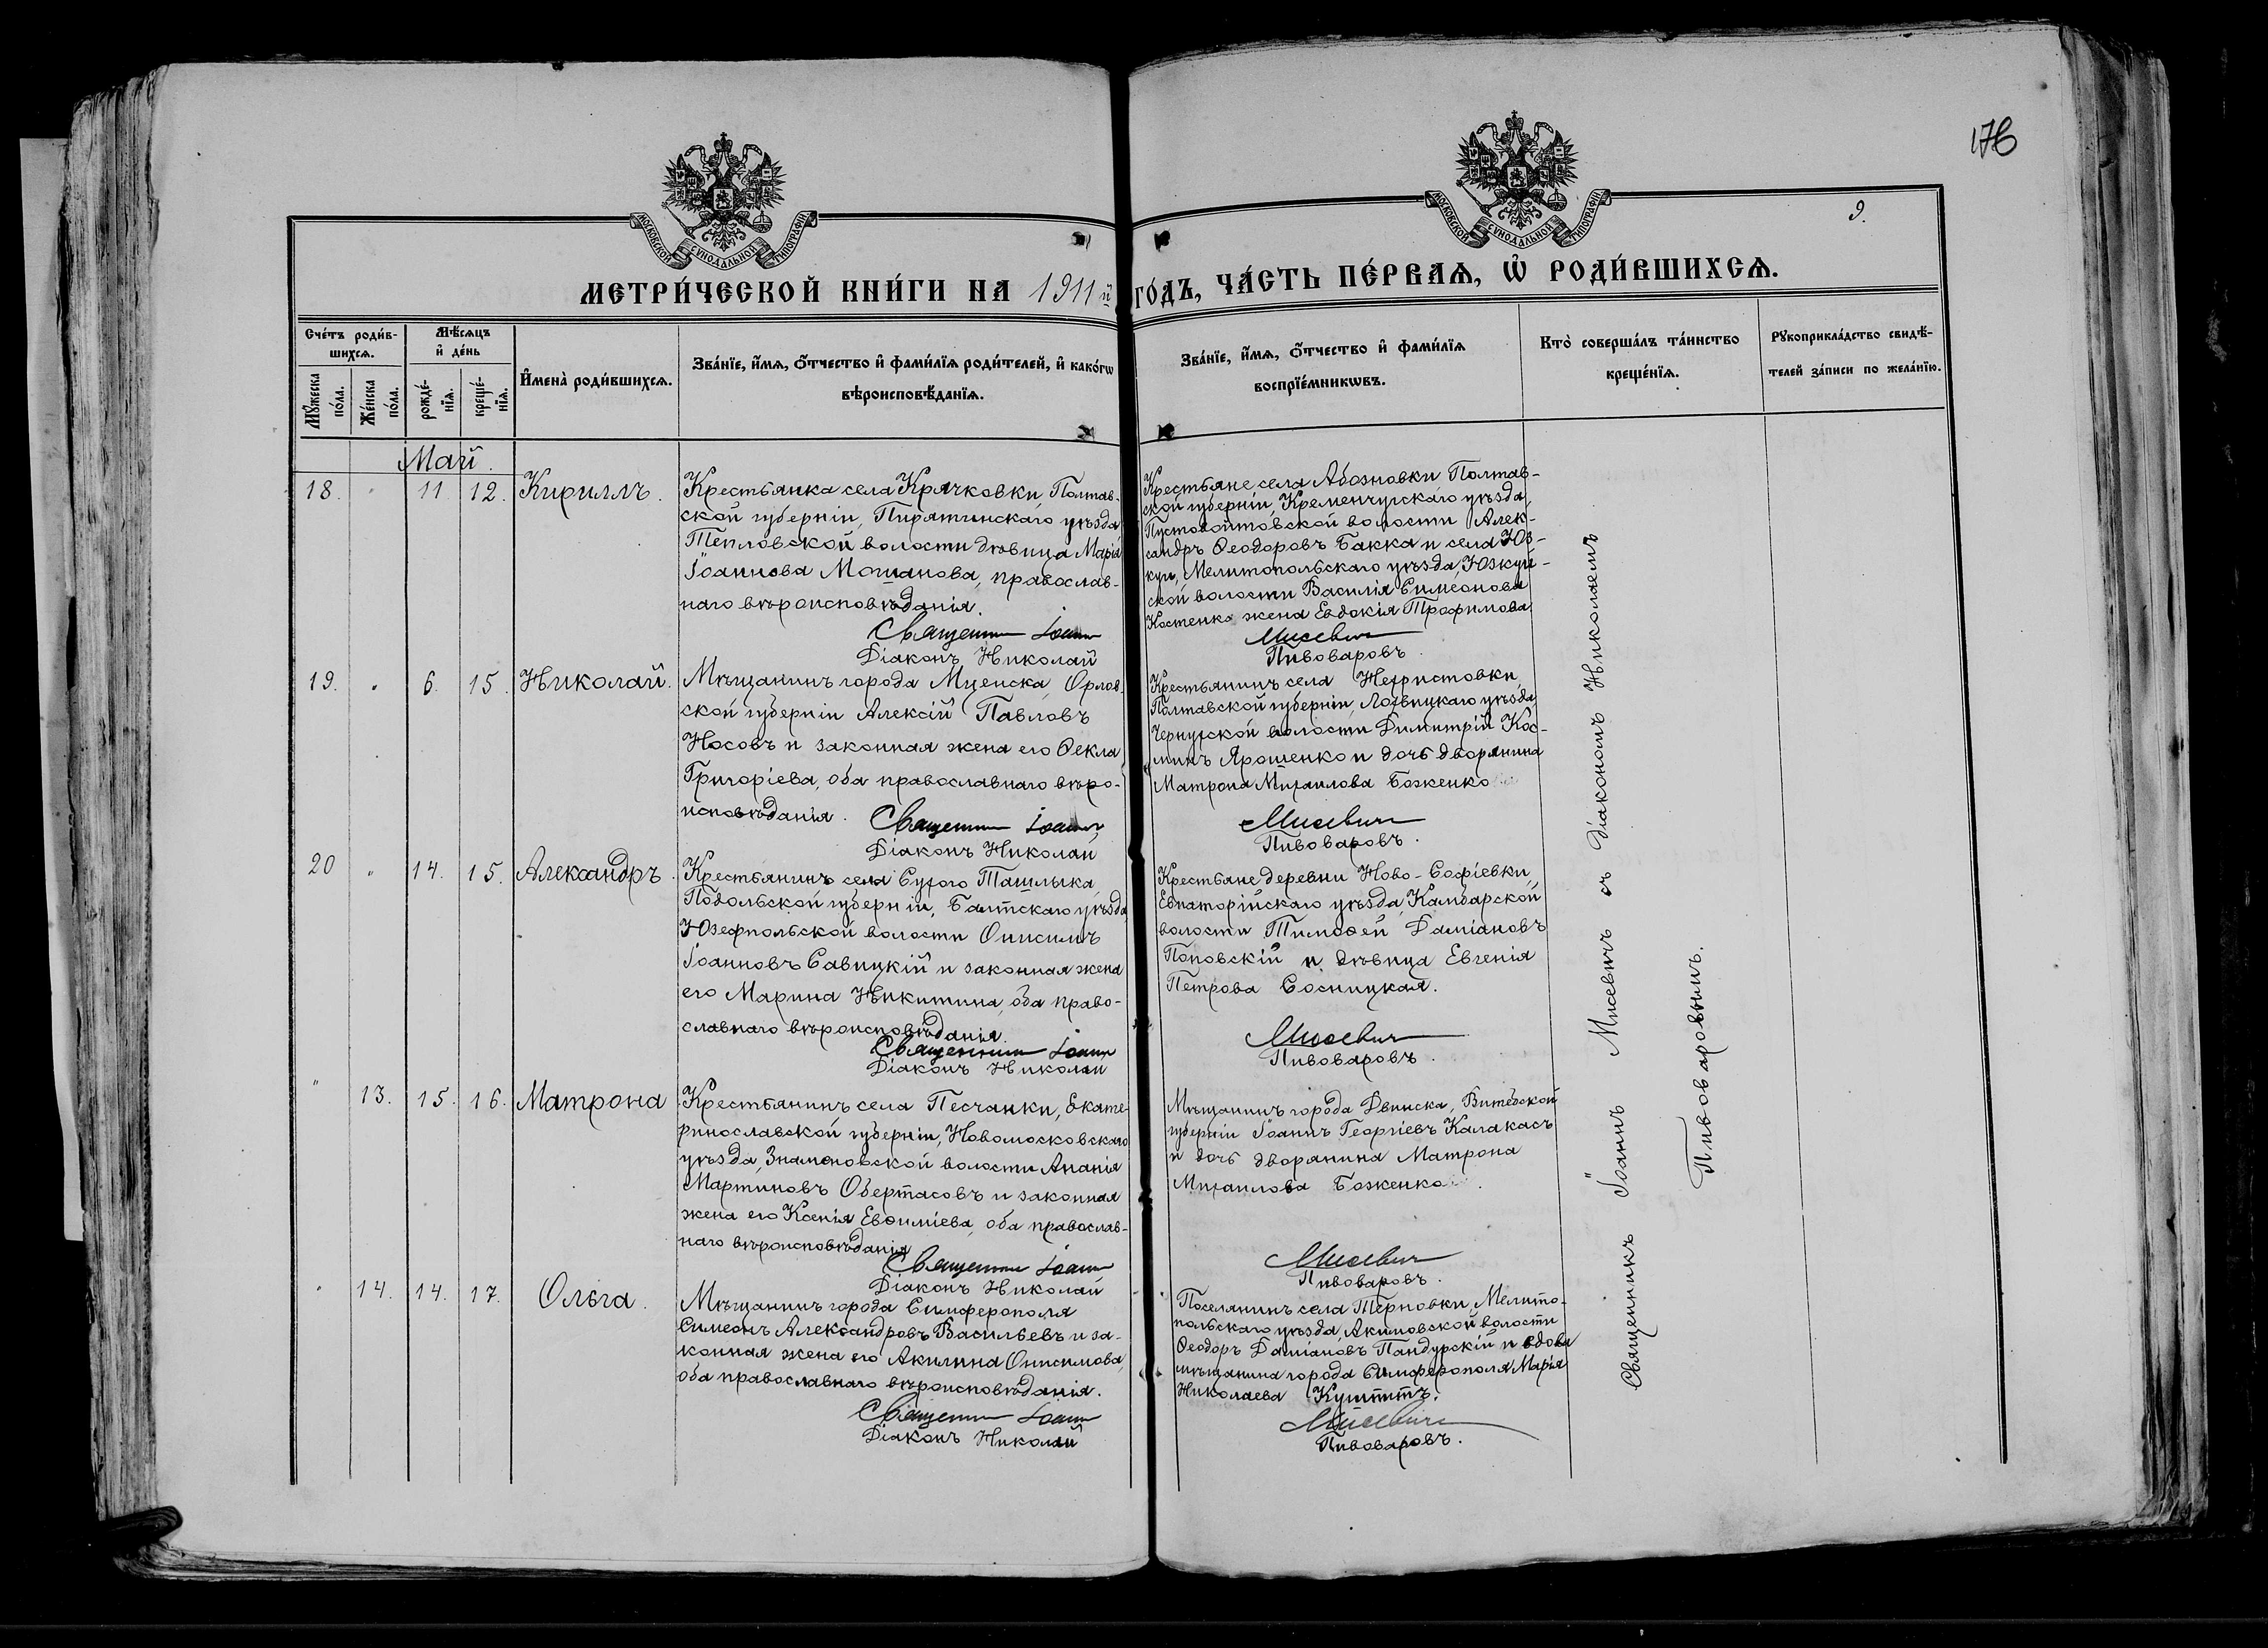 176
9.
МОСКОВСКОЙ СѴНОДАЛЬНОЙ ТИПОГРАФІИ
МОСКОВСКОЙ СѴНОДАЛЬНОЙ ТИПОГРАФІИ
МЕТРИ́ЧЕСКОЙ КНИ́ГИ НА 1911й ГО́ДЪ, ЧА́СТЬ ПЕ́РВАѦ, Ѡ҆ РОДИ́ВШИХСѦ.
Сче́тъ роди́в-
шихсѧ.
Мꙋ́жеска по́ла.
Же́нска по́ла.
Мѣ́сѧцъ
и҆ де́нь
рожде́-
нїѧ.
креще́-
нїѧ.
И҆мена̀ роди́вшихсѧ.
Зва́нїе, и҆́мѧ, ѻ҆́тчество и҆ фами́лїѧ роди́телей, и҆ како́гѡ
вѣроисповѣ́данїѧ.
Зва́нїе, и҆́мѧ, ѻ҆́тчество и҆ фами́лїѧ
воспрїе́мникѡвъ.
Кто̀ соверша́лъ та́инство
креще́нїѧ.
Рꙋкоприкла́дство свидѣ́-
телей за́писи по жела́нїю.
Май.
18. " 11. 12. Кириллъ.
Крестьянка села Крячковки, Полтав-
ской губерніи, Пирятинскаго уѣзда,
Тепловской волости дѣвица Марія
Іоаннова Мошанова, православ-
наго вѣроисповѣданія.
Священникъ Іоаннъ
Діаконъ Николай
Крестьяне села Абозновки Полтав-
ской губерніи, Кременчугскаго уѣзда,
Пустовойтовской волости Алек-
сандръ Ѳеодоровъ Бакка и села Юз-
куи, Мелитопольскаго уѣзда, Юзкуй-
ской волости Василія Симеонова
Костенко жена Евдокія Трофимова
Мисевичъ
Пивоваровъ.
19. " 6. 15. Николай.
Мѣщанинъ города Мценска, Орлов-
ской губерніи Алексій Павловъ
Носовъ и законная жена его Ѳекла
Григоріева, оба православнаго вѣро-
исповѣданія.
Священникъ Іоаннъ
Діаконъ Николай
Крестьянинъ села Нехристовки,
Полтавской губерніи, Лохвицкаго уѣзда,
Чернухской волости Димитрій Кос-
минъ Ярошенко и дочь дворянина
Матрона Михаилова Боженко
Мисевичъ
Пивоваровъ.
20 " 14. 15. Александръ.
Крестьянинъ села Сухого Ташлыка,
Подольской губерніи, Балтскаго уѣзда,
Юзефпольской волости Онисимъ
Іоанновъ Савицкій и законная жена
его Марина Никитина, оба право-
славнаго вѣроисповѣданія.
Священникъ Іоаннъ
Діаконъ Николай
Крестьяне деревни Ново-Софіевки,
Евпаторійскаго уѣзда, Камбарской
волости Тимоѳей Даміановъ
Поповскій и дѣвица Евгенія
Петрова Сосницкая.
Мисевичъ
Пивоваровъ.
" 13. 15. 16. Матрона
Крестьянинъ села Песчанки, Екате-
ринославской губерніи, Новомосковскаго
уѣзда, Знаменовской волости Ананія
Мартиновъ Обертасовъ и законная
жена его Ксенія Евѳиміева, оба православ-
наго вѣроисповѣданія
Священникъ Іоаннъ
Діаконъ Николай
Мѣщанинъ города Двинска, Витебской
губерніи Іоаннъ Георгіевъ Калакасъ
и дочь дворянина Матрона
Михаилова Боженко.
Мисевичъ
Пивоваровъ.
" 14. 14. 17. Ольга.
Мѣщанинъ города Симферополя
Симеонъ Александровъ Васильевъ и за-
конная жена его Акилина Онисимова,
оба православнаго вѣроисповѣданія.
Священникъ Іоаннъ
Діаконъ Николай
Поселянинъ села Терновки, Мелито-
польскаго уѣзда, Акимовской волости
Ѳеодоръ Даміановъ Пандурскій и вдова
мѣщанина города Симферополя Марія
Николаева
Мисевичъ
Пивоваровъ.
Священникъ Іоаннъ Мисевичъ съ діакономъ Николаемъ
Пивоваровымъ.